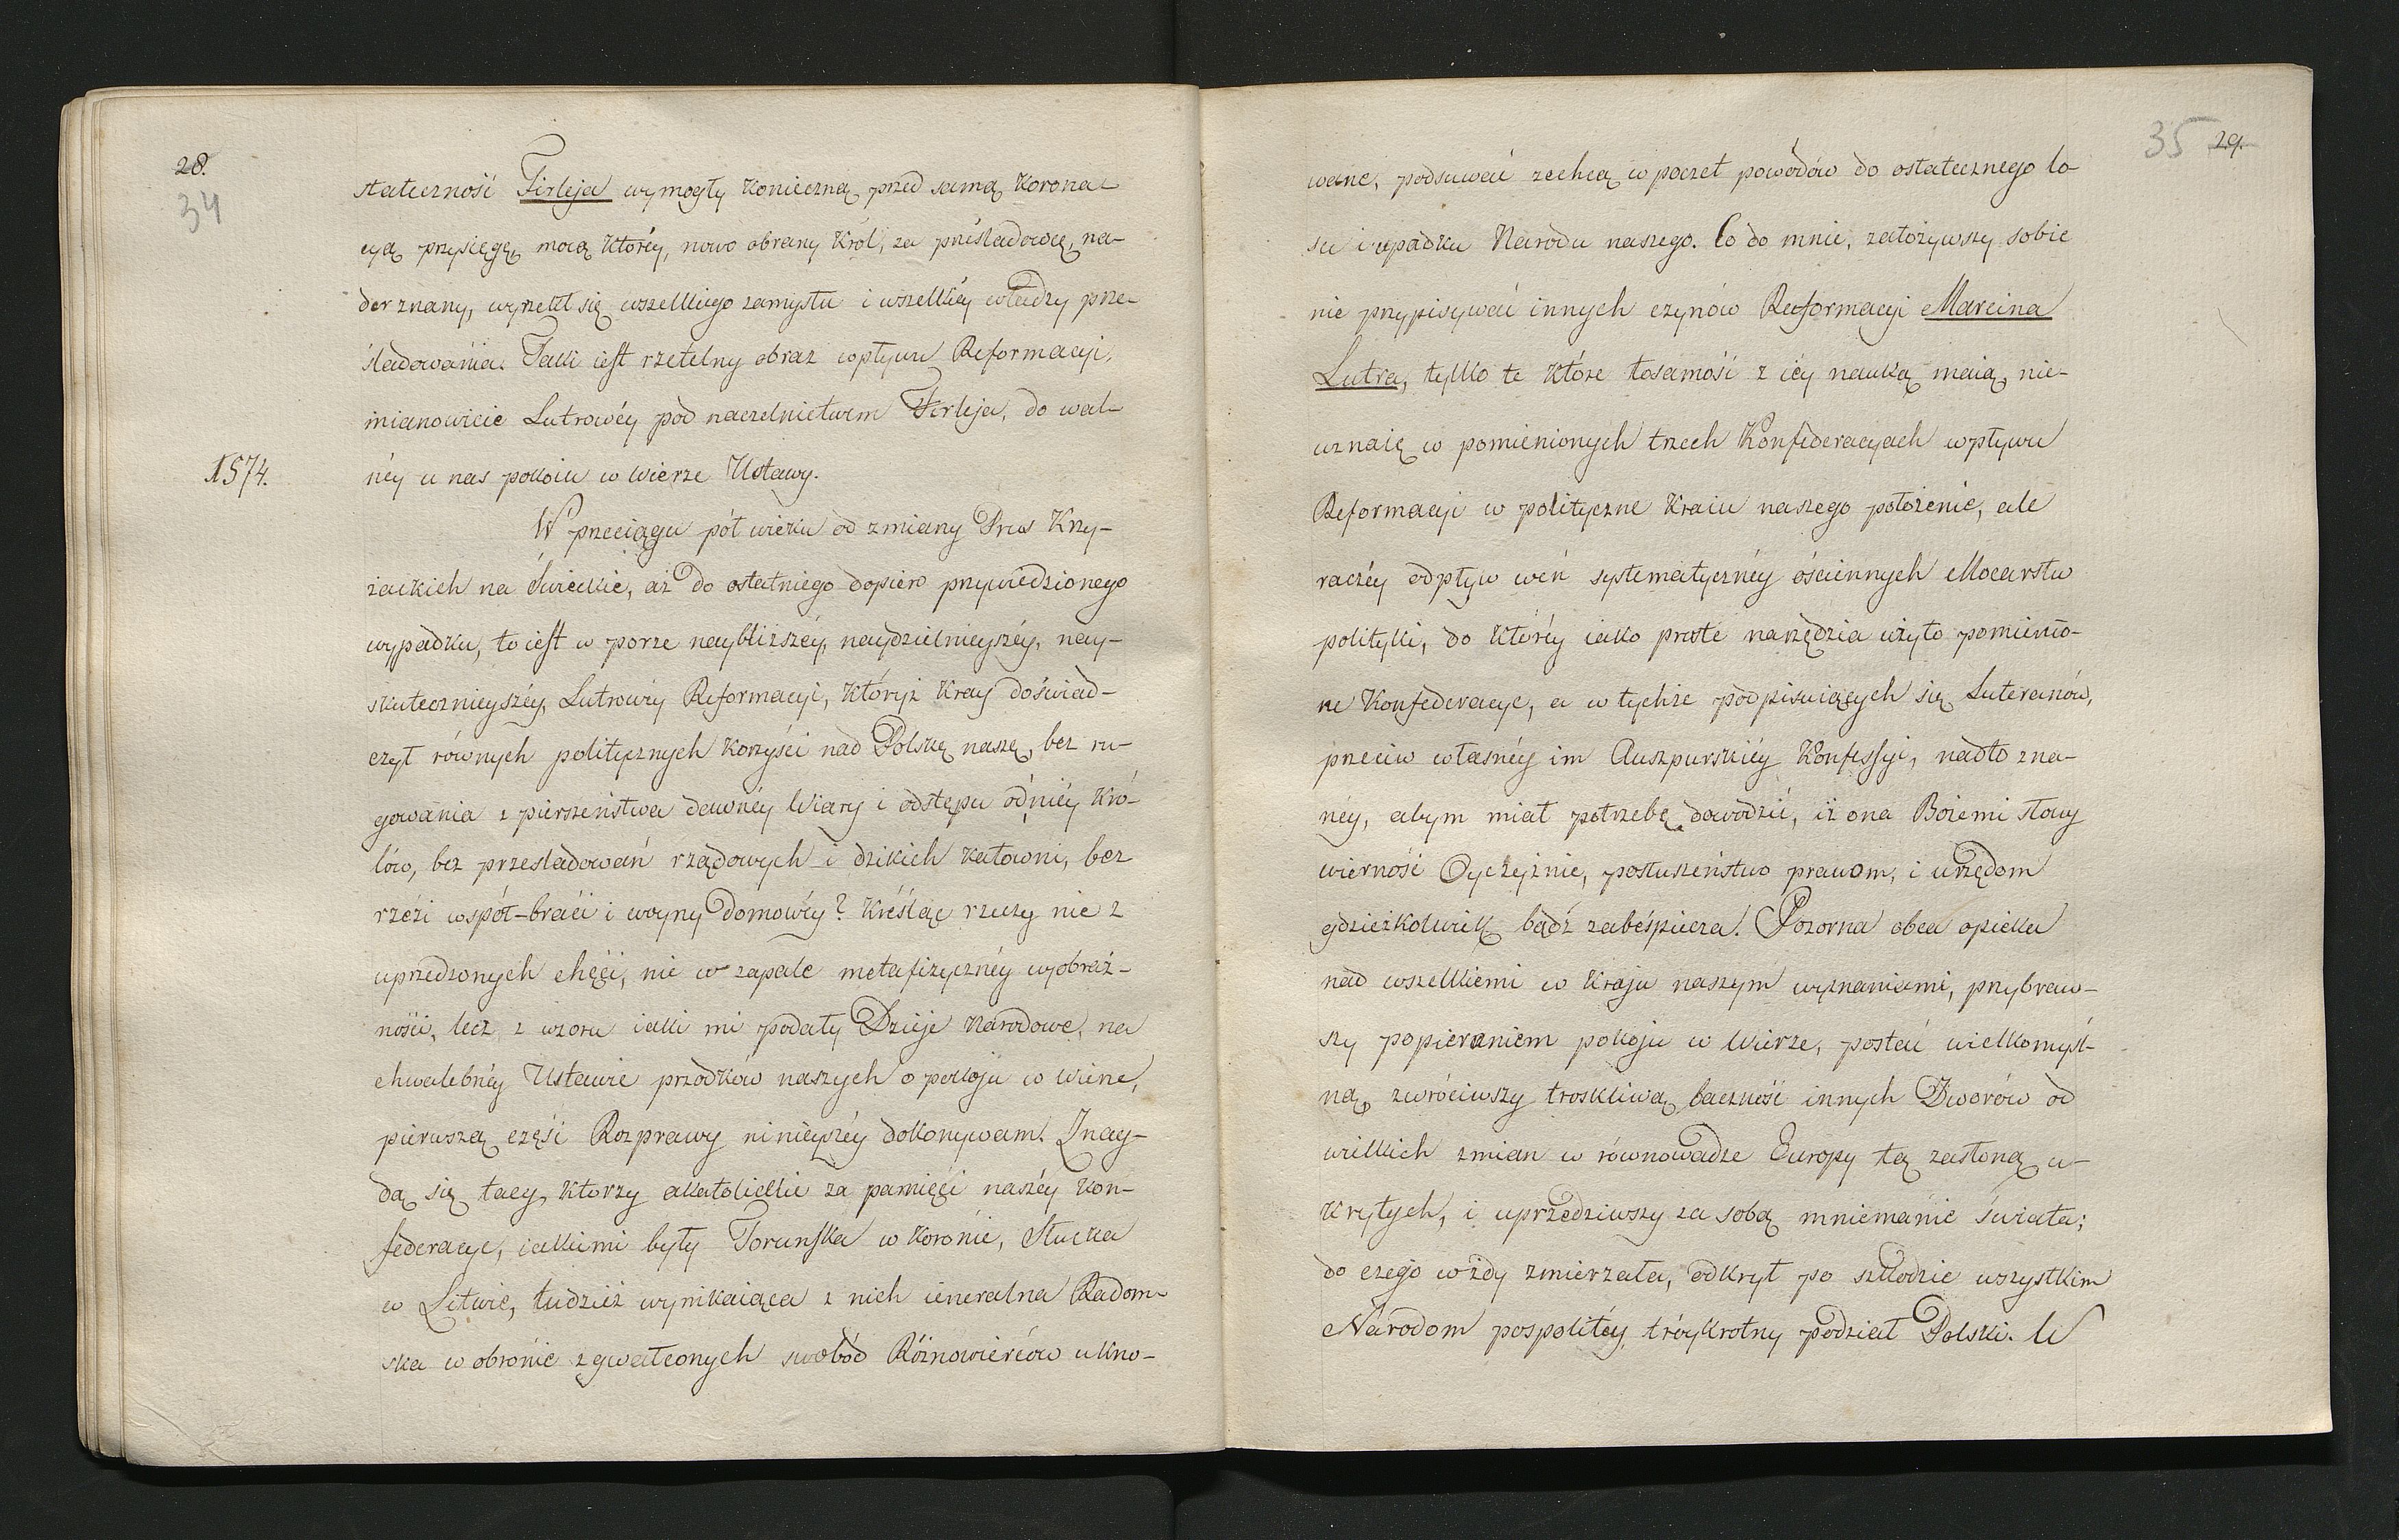 28.
34
stateczność Firleja wymogły konieczną przed samą Korona-
cyą przysięgę, mocą którey, nowo obrany Król, za prześladowcę, na-
der znany, wyrzekł się wszelkiego zamysłu i wszelkiéy władzy prze-
śladowania. Taki iest rzetelny obraz wpływu Reformacyi,
mianowicie Lutrowéy pod naczelnictwem Firleja, do wal-
1574.
néy u nas pokoiu w wierze Ustawy.
W przeciągu pół wieku od zmiany Prus Krzy-
żackich na świeckie, aż do ostatniego dopiero przywiedzionego
wypadku, to iest w porze naybliższéy, naydzielnieyszéy, nay-
skutecznieyszéy, Lutrowéy Reformacyi, któryż kray doświad-
czył równych politycznych korzyści nad Polskę naszę, bez ru-
gowania z pierszeństwa dawnéy Wiary i odstępu od niéy Kró-
lów, bez prześladowań rządowych i dzikich katowni, bez
rzézi współ-braći i woyny domowéy? Kréśląc rzeczy nie z
uprzedzonych chęći, nie w zapale metafizycznéy wyobraź-
nośći, lecz z wzoru iaki mi podały Dzieje Narodowe, na
chwalebnéy Ustawie przodków naszych o pokoju w wierze,
pierwszą część Rozprawy ninieyszéy dokonywam. Znay-
dą się tacy, którzy akatolickie za pamięći naszéy Kon-
federacye, iakiemi były Toruńska w Koronie, Słucka
w Litwie, tudzież wynikaiąca z nich ieneralna Radom-
ska w obronie zgwałconych swobód Róznowierców ukno-
35 29.
wane, podsuwać zechcą w poczet powodów do ostatecznego lo-
su i upadku Narodu naszego. Co do mnie, założywszy sobie
nie przypisywać innych czynów Reformacyi Marcina
Lutra, tylko te które tosamość z iéy nauką maią, nie-
uznaię w pomienionych trzech Konfederacyach wpływu
Reformacyi w polityczne kraiu naszego położenie, ale
raczéy odpływ weń systematycznéy ościennych Mocarstw
polityki, do któréy iako proste narzędzia użyto pomienio-
ne Konfederacye, a w tychże podpisuiących się Luteranów,
przeciw własnéy im Auszpurskiéy Konfessyi, nadto zna-
néy, abym miał potrzebę dowodzić, iż ona Bożemi słowy
wierność Oyczyznie, posłuszeństwo prawom, i urzędom
gdzieżkolwiek bądź zabéśpiecza. Pozorna obca opieka
nad wszelkiemi w Kraju naszym wyznaniami, przybraw-
szy popieraniem pokoju w Wierze, postać wielkomyśl-
ną, zwróciwszy troskliwą baczność innych Dworów od
wielkich zmian w równowadze Europy tą zasłoną u-
krytych, i uprzedziwszy za sobą mniemanie świata;
do czego wżdy zmierzała, odkrył po szkodzie wszystkim
Narodom pospolitéy, tróykrotny podział Polski. W